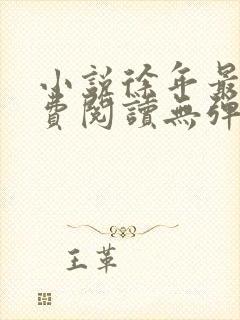 小説徐年最
費閱讀無彈
王革